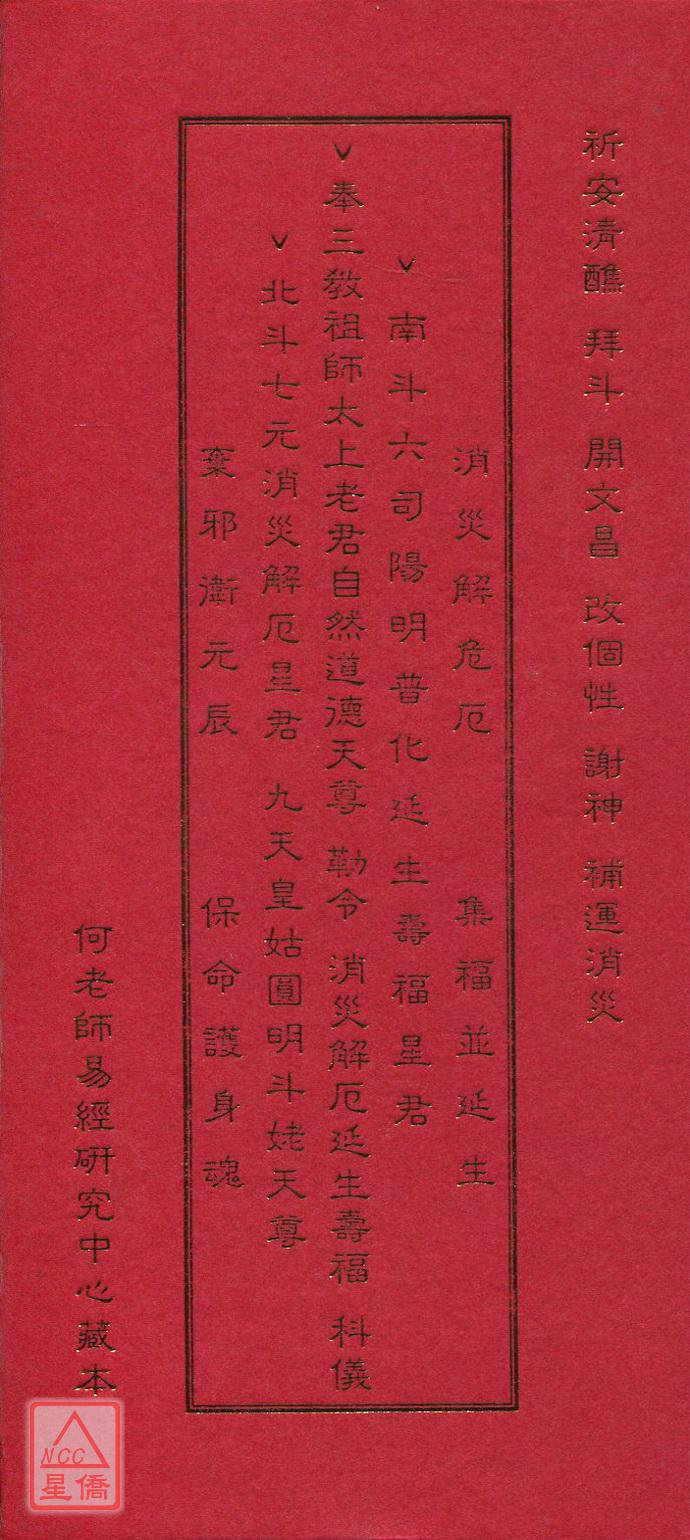 祈安清醮 拜斗 開文昌 改個性 謝神 補運消災
消災解危厄 集福並延生
南斗六司陽明普化延生壽福星君
奉三教祖師太上老君自然道德天尊 勅令 消災解厄延生壽福 科儀
北斗七元消災解厄星君 九天皇姑圓明斗姥天尊
棄邪衛元辰 保命護身魂
何老師易經研究中心藏本
NCC
星僑